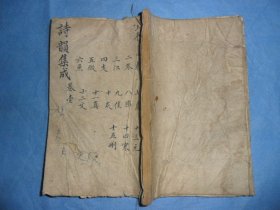 二冬 八齊 十四寒
三江 九佳 十五刪
四支 十灰
五微 十一真
六魚 十二文
詩韻集成 卷壹